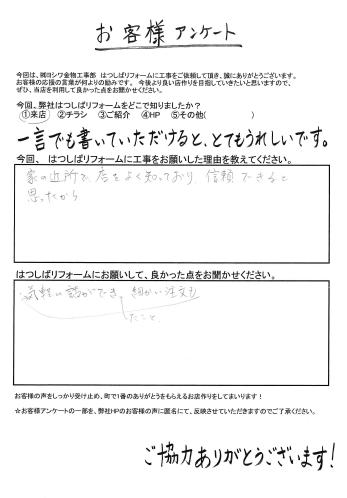 お客様アンケート
今回は、㈱ヨシワ金物工事部 はつしばリフォームに工事をご依頼して頂き、誠にありがとうございます。
お客様の応援の言葉が何よりの励みです。 今後より良い店作りを目指していきたいと思いますので、
ぜひ、当店を利用して良かった点をお聞かせください。
今回、弊社はつしばリフォームをどこで知りましたか?
①来店 ②チラシ ③ご紹介 ④HP ⑤その他( )
一言でも書いていただけると、とてもうれしいです。
今回、 はつしばリフォームに工事をお願いした理由を教えてください。
家の近所で 店をよく知っており、信頼 できると
思ったから
はつしばリフォームにお願いして、良かった点をお聞かせください。
気軽に 話ができ、細かい注文も
したこと。
お客様の声をしっかり受け止め、町で1番のありがとうをもらえるお店作りをしてまいります!
☆お客様アンケートの一部を、弊社HPのお客様の声に匿名にて、反映させていただきますのでご了承ください。
ご協力ありがとうございます!